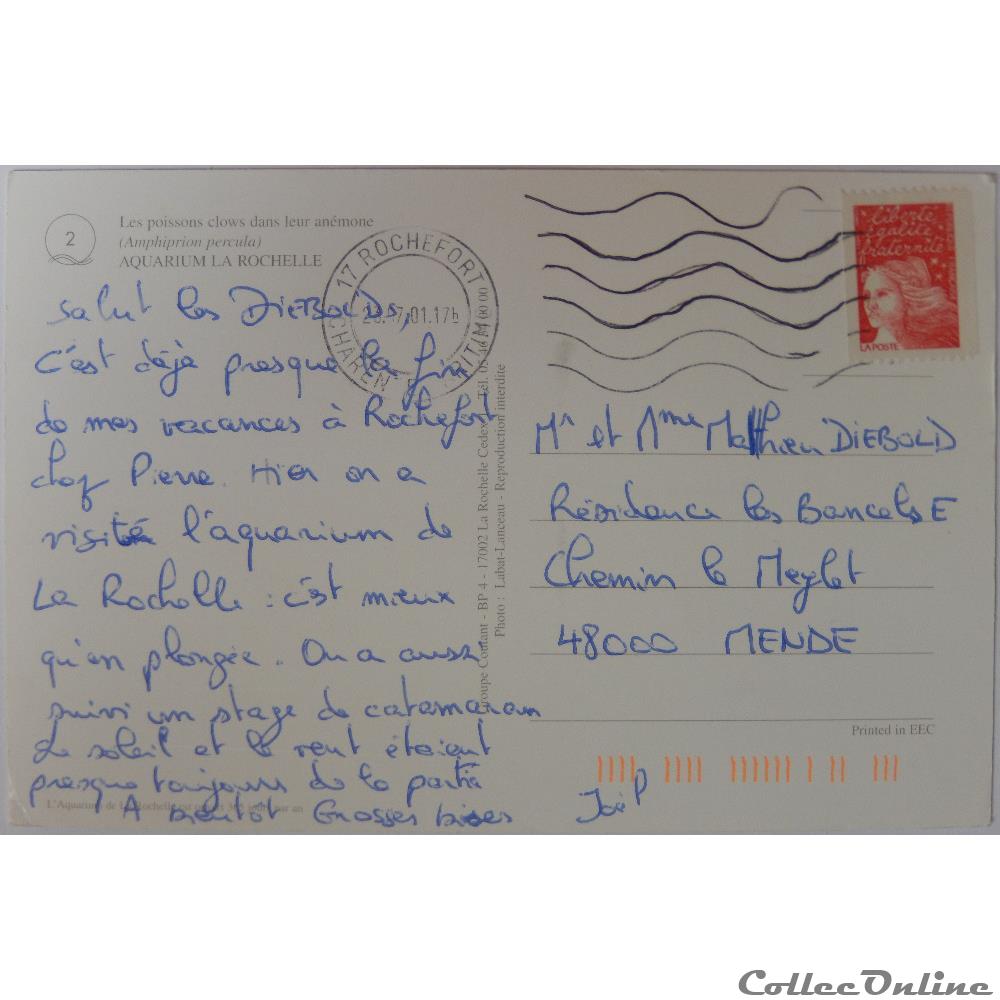 2
Les poissons clows dans leur anémone
(Amphiprion percula)
AQUARIUM LA ROCHELLE
17 ROCHEFORT
01.17h
liberté
égalité
fraternité
LA POSTE
Salut les DIEBOLDS,
C'est déjà presque la fin
de mes vacances à Rochefort
chez Pierre. Hier on a
visité l'aquarium de
La Rochelle : c'est mieux
qu'en plongée. On a aussi
suivi un stage de catamaran
Le soleil et le vent étaient
presque toujours de la partie
A bientôt Grosses bises
Groupe Coutant - BP 4 - 17002 La Rochelle Cedex - Tél. 05 46 00 00
Photo : Labat-Lanceau - Reproduction interdite
Mr et Mme Matthieu DIEBOLD
Résidence les Bancels E
Chemin le Meylet
48000 MENDE
Printed in EEC
L'Aquarium de La Rochelle est ouvert 365 jours par an
CollecOnline